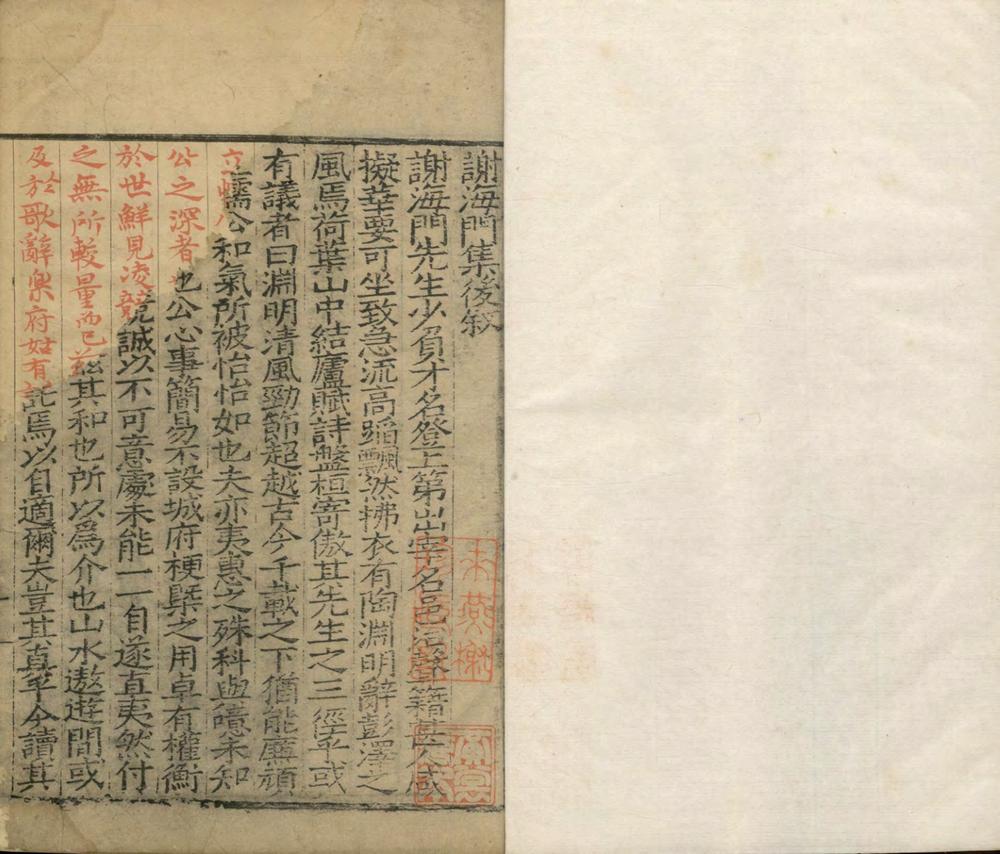 謝海門集後敘
謝海門先生少負才名登上第出宰名邑治聲籍甚人咸
擬華要可坐致急流高蹈飄然拂衣有陶淵明辭彭澤之
風焉荷葉山中結廬賦詩盤桓寄傲其先生之三徑乎或
有議者曰淵明清風勁節超越古今千載之下猶能廉頑
立懦公和氣所被怡怡如也夫亦夷惠之殊科與噫未知
公之深者也公心事簡易不設城府梗槩之用卓有權衡
於世鮮見凌競誠以不可意處未能一一自遂直夷然付
之無所較量而已茲其和也所以爲介也山水遨遊間或
及於歌辭樂府姑有託焉以自適爾夫豈其真乎今讀其